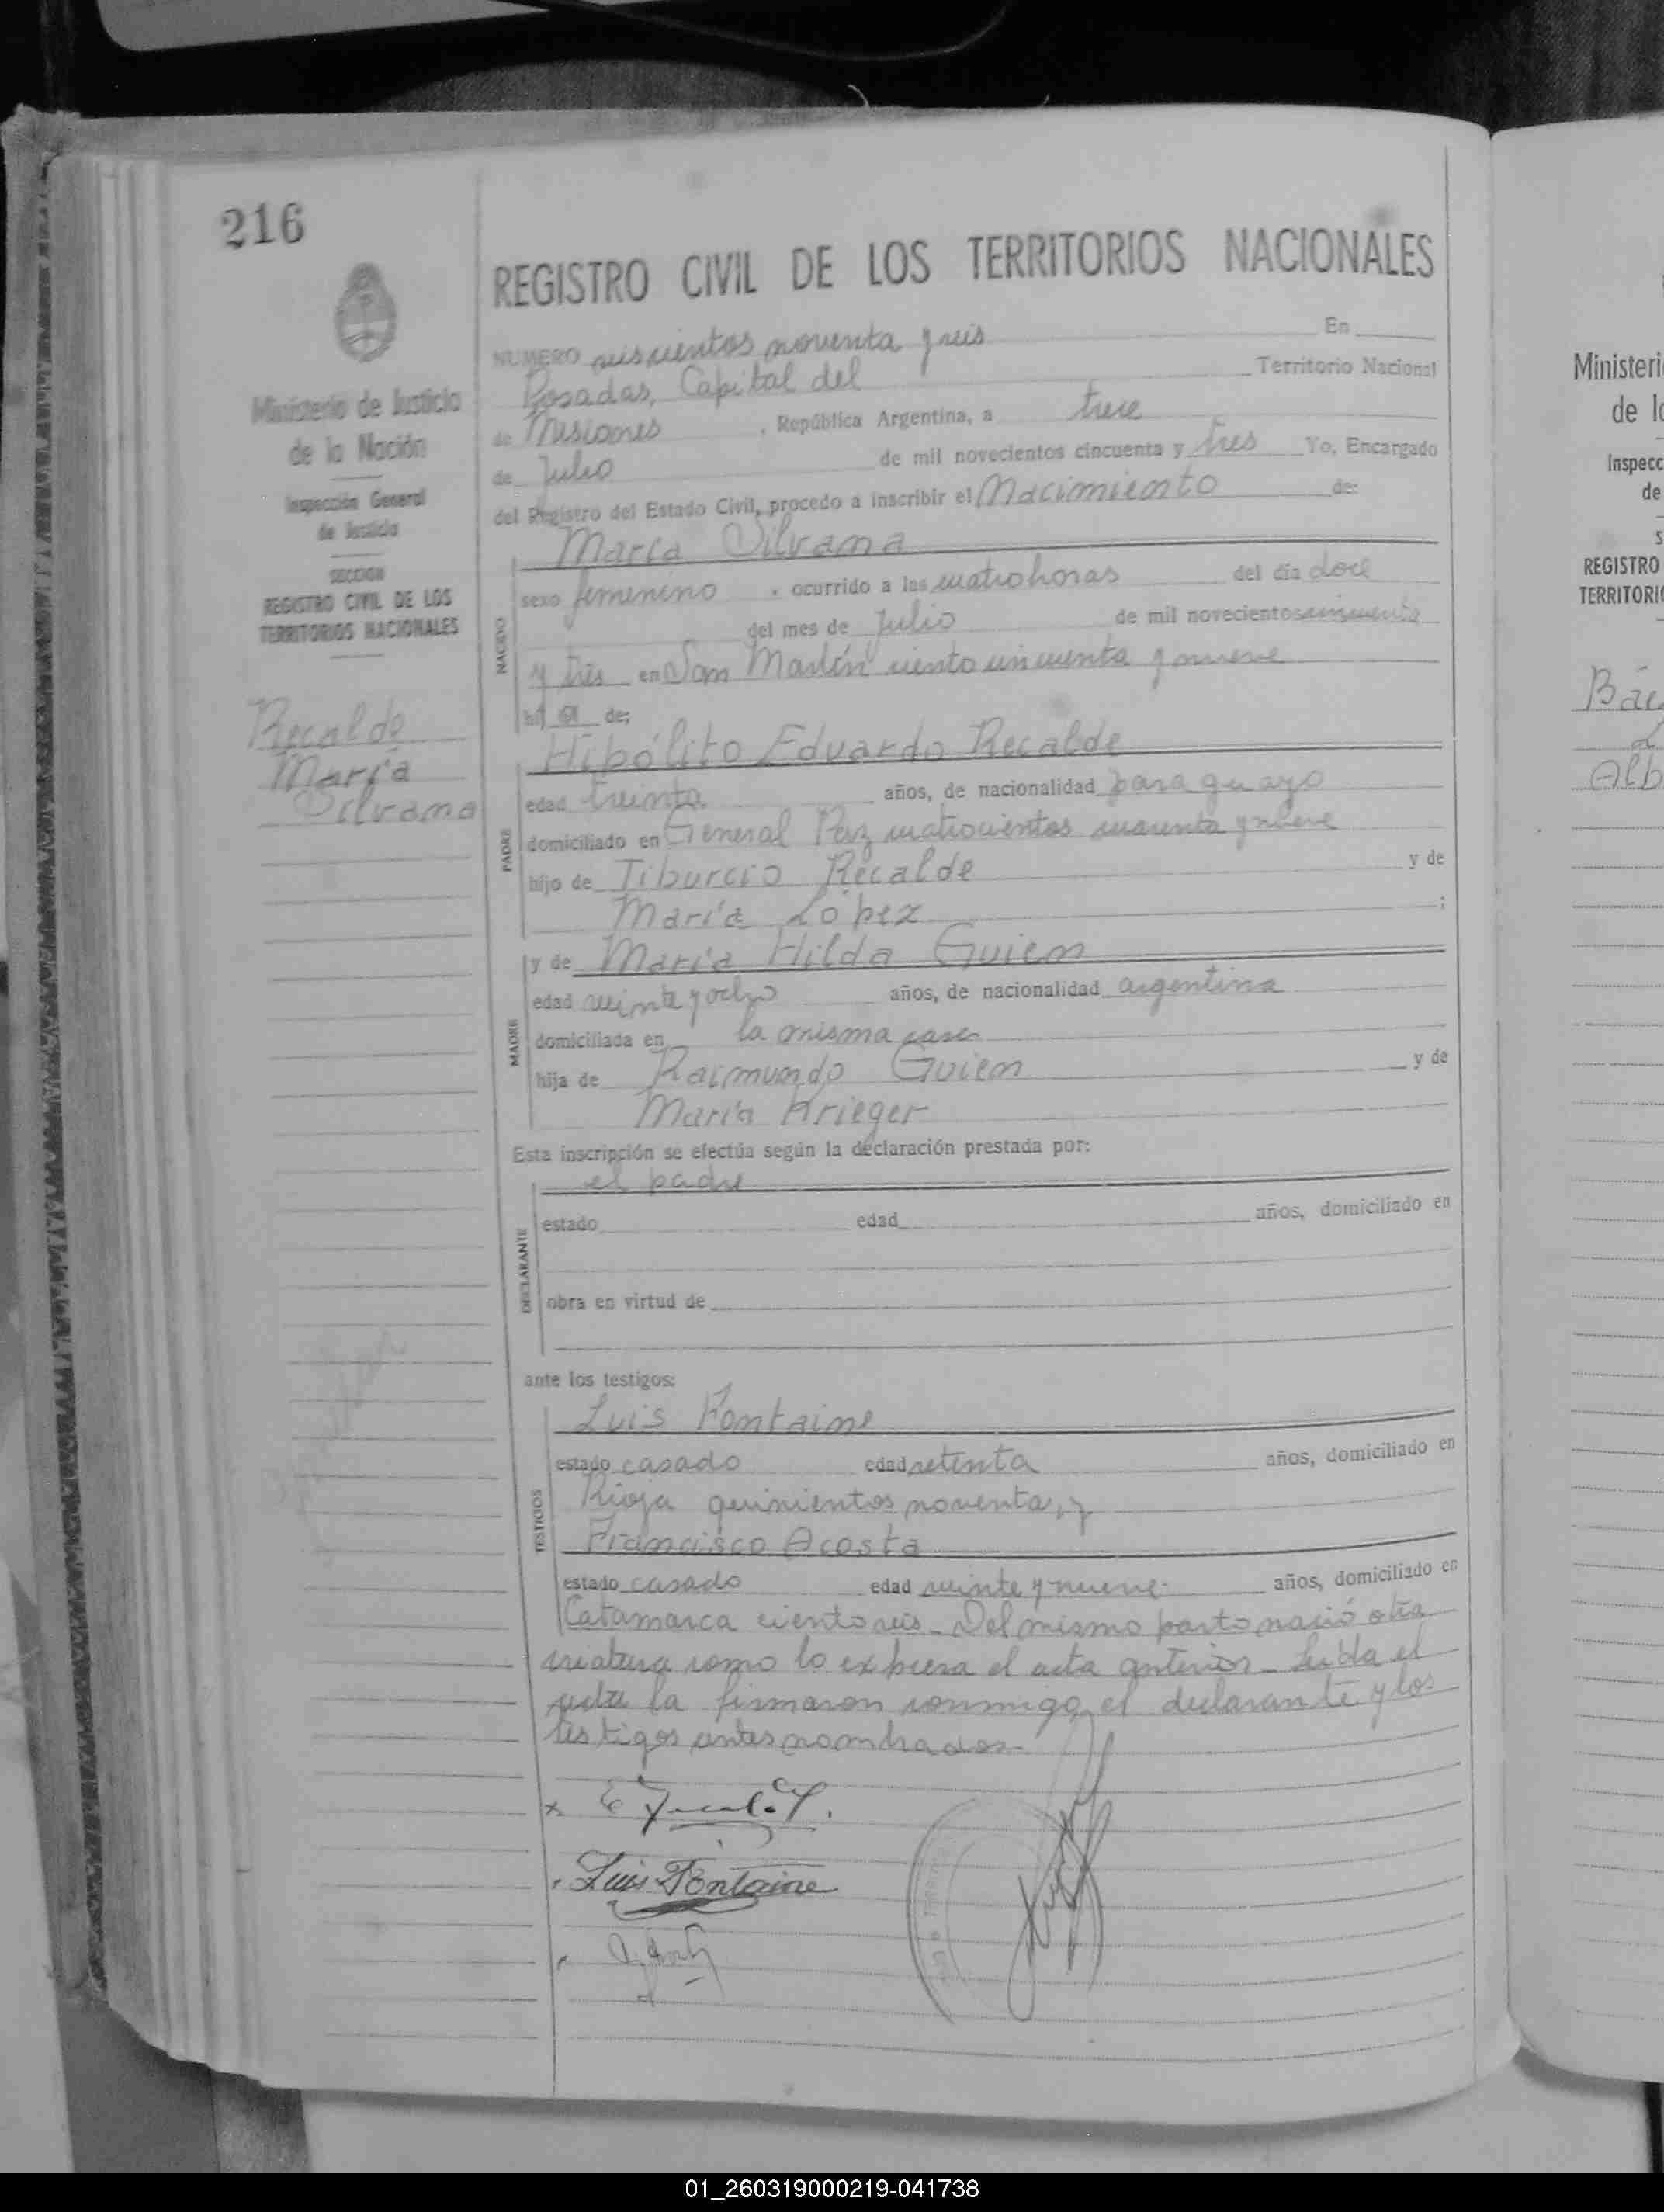 216
REGISTRO CIVIL DE LOS TERRITORIOS NACIONALES
Ministerio de Justicia
de la Nación
Inspección General
de Justicia
SECCION
REGISTRO CIVIL DE LOS
TERRITORIOS NACIONALES
Recalde
María
Silvana
NUMERO seiscientos noventa y seis En
Posadas, Capital del Territorio Nacional
de Misiones , República Argentina, a trece
de Julio de mil novecientos cincuenta y tres Yo, Encargado
del Registro del Estado Civil, procedo a inscribir el Nacimiento de:
María Silvana
NACIDO
sexo femenino . ocurrido a las cuatro horas del día doce
del mes de Julio de mil novecientos cincuenta
y tres en San Martín ciento cincuenta y nueve
hij a de:
Hipólito Eduardo Recalde
PADRE
edad treinta años, de nacionalidad paraguayo
domiciliado en General Paz cuatrocientos cuarenta y nueve
hijo de Tiburcio Recalde y de
María López ;
y de María Hilda Guien
MADRE
edad veinte y ocho años, de nacionalidad argentina
domiciliada en la misma casa
hija de Raimundo Guien y de
María Krieger
Esta inscripción se efectúa según la declaración prestada por:
el padre
DECLARANTE
estado edad años, domiciliado en
obra en virtud de
ante los testigos:
Luis Fontaine
TESTIGOS
estado casado edad setenta años, domiciliado en
Rioja quinientos noventa, y
Francisco Acosta
estado casado edad veinte y nueve- años, domiciliado en
Catamarca ciento seis_ Del mismo parto nació otra
criatura como lo expresa el acta anterior_ Leída el
acta la firmaron conmigo, el declarante y los
testigos antes nombrados-
Luis Fontaine
Ministeri
de l
Inspecc
de
S
REGISTRO
TERRITORI
Báe
Alb
01_260319000219-041738